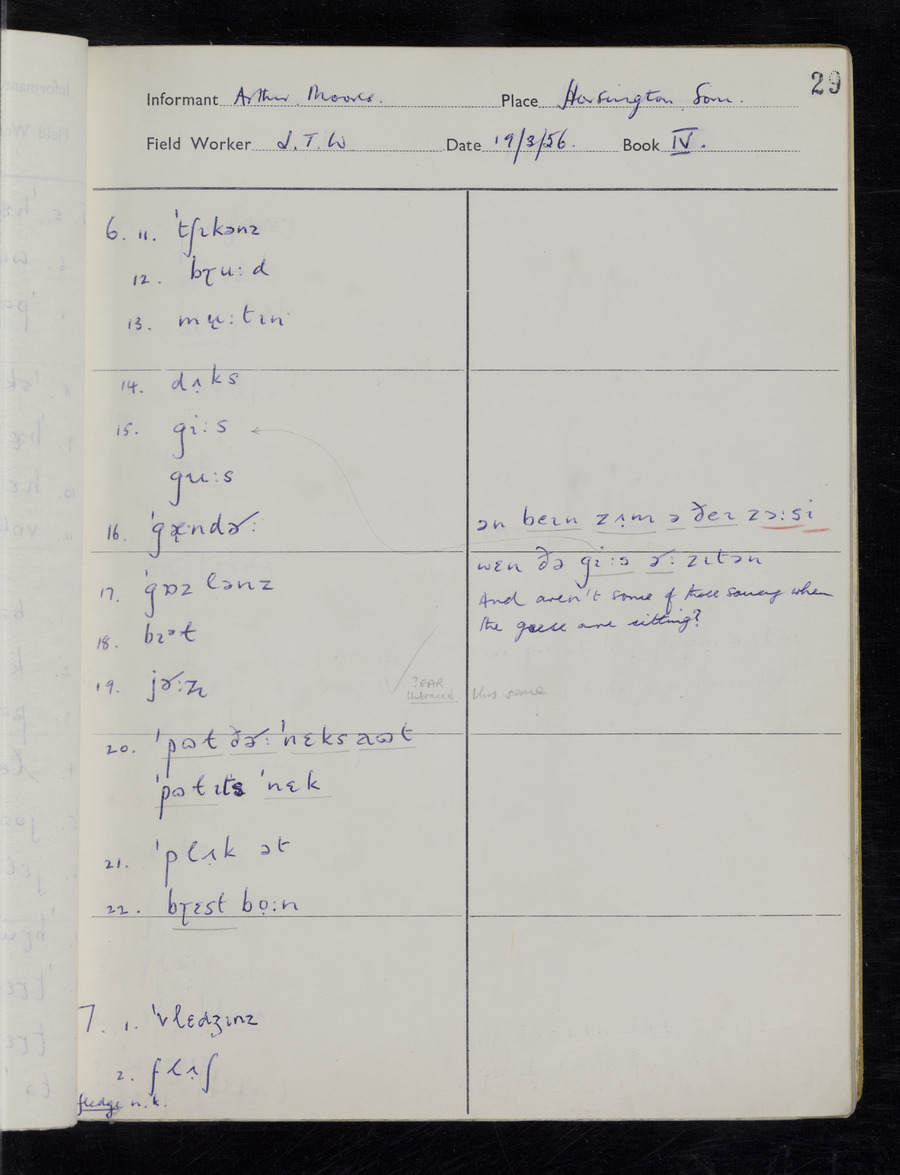 29
Informant Arthur Moores. Place Horsington, Som.
Field Worker J.T.W Date 19/3/56. Book IV.
6. 11. ˈtʃɪkənz
12. bɽu:d
13. mu̜:tɪn
14. dʌ̣ks
15. gi:s
gu:s
16. ˈgæ̜ndɚ:
ən beɪn zʌ̣m ə ðeɪ zə:si
wɛn ðə gi:s ɚ: zɪtən
And aren't some of those saucy when
the geese are sitting?
17. ˈgɒzlənz
18. bɪᵊt
19. jɚ:z̨
?EAR
this same
20. ˈpɷt ðɚ: ˈnɛks aɷt
ˈpɷt ɪts ˈnɛk
21. ˈplʌ̣k ət
22. bɽɛst bọ:n
7. 1. ˈvlɛdʒɪnz
2. flʌ̣ʃ
fledge n.k.